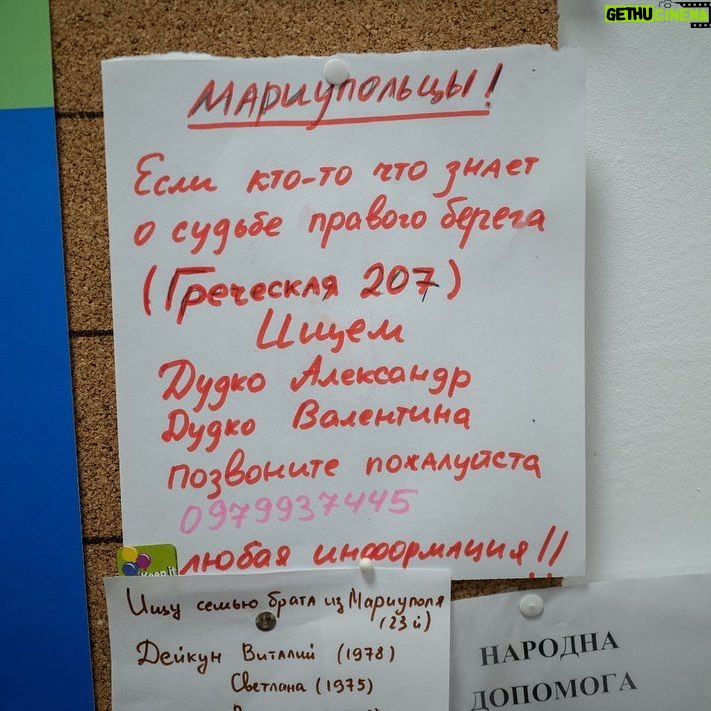 GETHUCINEMA
МАРИУПОЛЬЦЫ!
Если кто-то что знает
о судьбе правого берега
(Греческая 207)
Ищем
Дудко Александр
Дудко Валентина
позвоните пожалуйста
0979937445
любая информация!!
Ищу семью брата из Мариуполя
(23й)
Дейкун Виталий (1978)
Светлана (1975)
НАРОДНА
ДОПОМОГА